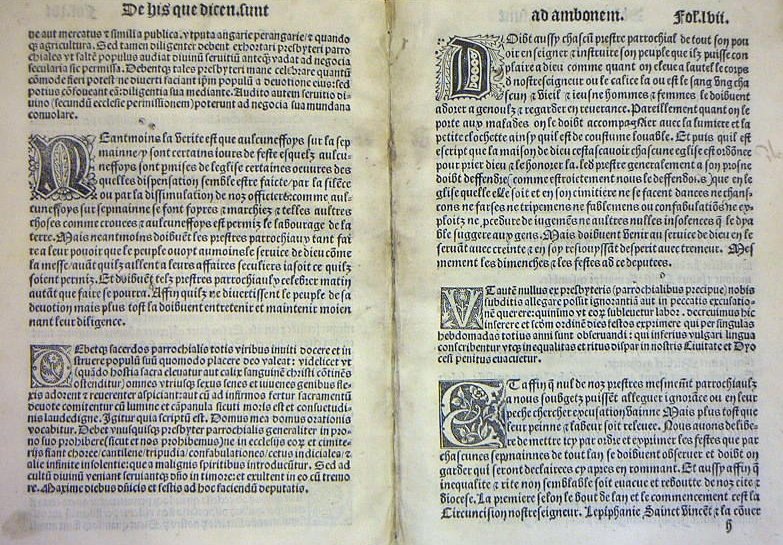 De his que dicen. sunt
de aut mercatus & similia publica. vtputa angarie perangarie/& quando
qʒ agricultura. Sed tamen diligenter debent exhortari presbyteri parro
chiales vt saltē populus audiat diuinū seruitiū anteqʒ vadat ad negocia
secularia sic permissa. Debentqʒ tales presbyteri mane celebrare quantū
cōmode fieri potest ne diuerti faciant ipm̄ populū a deuotione eius: sed
potius cōfoueant eū diligentia sua mediante. Audito autem seruitio di
uino (secundū ecclesie permissionem) poterunt ad negocia sua mundana
conuolare.
NEantmoins la verite est que aulcuneffoys sur la sep
mainne y sont certains iours de feste esquelz aulcu-
neffoys sont ꝑmises de leglise certaines oeuures des
quelles dispensation semble estre faicte/par la silēce
ou par la dissimulation de noz officiers: comme aul-
cuneffoys sur sepmainne se font foyres & marchiez & telles aultres
choses comme crouees & aulcuneffoys est permiz le labourage de la
terre. Mais neantmoins doibuēt les prestres parrochiaux tant fai
re a leur pouoir que le peuple ouoyt aumoins le seruice de dieu cōme
la messe/auāt quilz aillent a leurs affaires seculiers ia soit ce quilz
soient permiz. Et doibuēt telz prestres parrochiaulx celebrer matin
autāt que faire se pourra. Affin quilz ne diuertissent le peuple de sa
deuotion mais plus tost la doibuent entretenir et maintenir moien
nant leur diligence.
DEbetqʒ sacerdos parrochialis totis viribus inniti docere et in
struere populū suū quomodo placere deo valeat: videlicet vt
(quādo hostia sacra eleuatur aut calix sanguinē christi cōtinēs
ostenditur) omnes vtriusqʒ sexus senes et iuuenes genibus fle-
xis adorent & reuerenter aspiciant: aut cū ad infirmos fertur sacramentū
deuote comitentur cū lumine et cāpanula sicuti moris est et consuetudi-
nis laudedigne. Igitur quia scriptū est. Domus mea domus orationis
vocabitur. Debet vnusquisqʒ presbyter parrochialis generaliter in pro-
no suo prohibere (sicut et nos prohibemus) ne in ecclesijs eoꝝ et cimite-
rijs fiant choree/cantilene/tripudia/confabulationes/cetus indiciales &
alie infinite insolentie: que a malignis spiritibus introducūtur. Sed ad
cultū diuinū veniant seruiantqʒ dn̄o in timore: et exultent in eo cū tremo
re. Maxime diebus dn̄icis et festis ad hoc faciendū deputatis.
ad ambonem. Fol. lvii.
DOibt aussy chascū prestre parrochial de tout son pou
oir enseigner & instruire son peuple que ilz puisse con
plaire a dieu comme quant on eleue a lautel le corps
d nostreseigneur ou le calice la ou est le sang vng cha
scun & vieil & ieusne hommes & femmes le doibuent
adorer a genoulx & regarder en reuerance. Pareillement quant on le
porte aux malades on le doibt accompagnier auec la lumiere et la
petite clochette ainsy quil est de coustume louable. Et puis quil est
escript que la maison de dieu cestascauoir chascune eglise est ordōnee
pour prier dieu & lehonorer la. led prestre generalement a son prosne
doibt deffendre (comme estroictement nous le deffendons) que en le
glise quelle elle soit et en son cimitiere ne se facent dances ne chans
cons ne farses ne tripemens ne fablemens ou confabulatiōs ne ex
ploitz ne ꝓcedure de iugemēs ne aultres nulles insolences q̄ le dya
ble suggere aux gens. Mais doibuent venir au seruice de dieu en le
seruāt auec creinte & en soy resiouyssāt desperit auec tremeur. Mes
mement les dimenches & les festes ad ce deputees.
VTautē nullus ex presbyteris (parrochialibus precipue) nobis
subditis allegare possit ignorantiā aut in peccatis excusatio-
nē querere: quinimo vt eoꝝ subleuetur labor. decreuimus hic
inserere et scdm̄ ordinē dies festos exprimere qui per singulas
hebdomadas totius anni sunt obseruandi: qui inferius vulgari lingua
conscribentur vtqʒ inequalitas et ritus dispar in nostris Ciuitate et Dyo
cesi penitus euacuetur.
ET affin q̄ nul de noz prestres mesmemēt parrochiaulx
a nous soubgetz puissēt alleguer ignorāce ou en leur
peche chercher excusation vainne Mais plus tost que
leur peinne & labeur soit releuee. Nous auons delibe-
re de mettre icy par ordre et exprimer les festes que par
chascunes sepmainnes de tout lan se doibuent obseruer et doibt on
garder qui seront declairees cy apres en rommant. Et aussy affin q̄
inequalite & rite non semblable soit euacue et reboutte de noz cite &
diocese. La premiere selon le bout de lan et le commencement cest la
Circuncision nostreseigneur. Lepiphanie Sainct vincēt & la cōuer
h